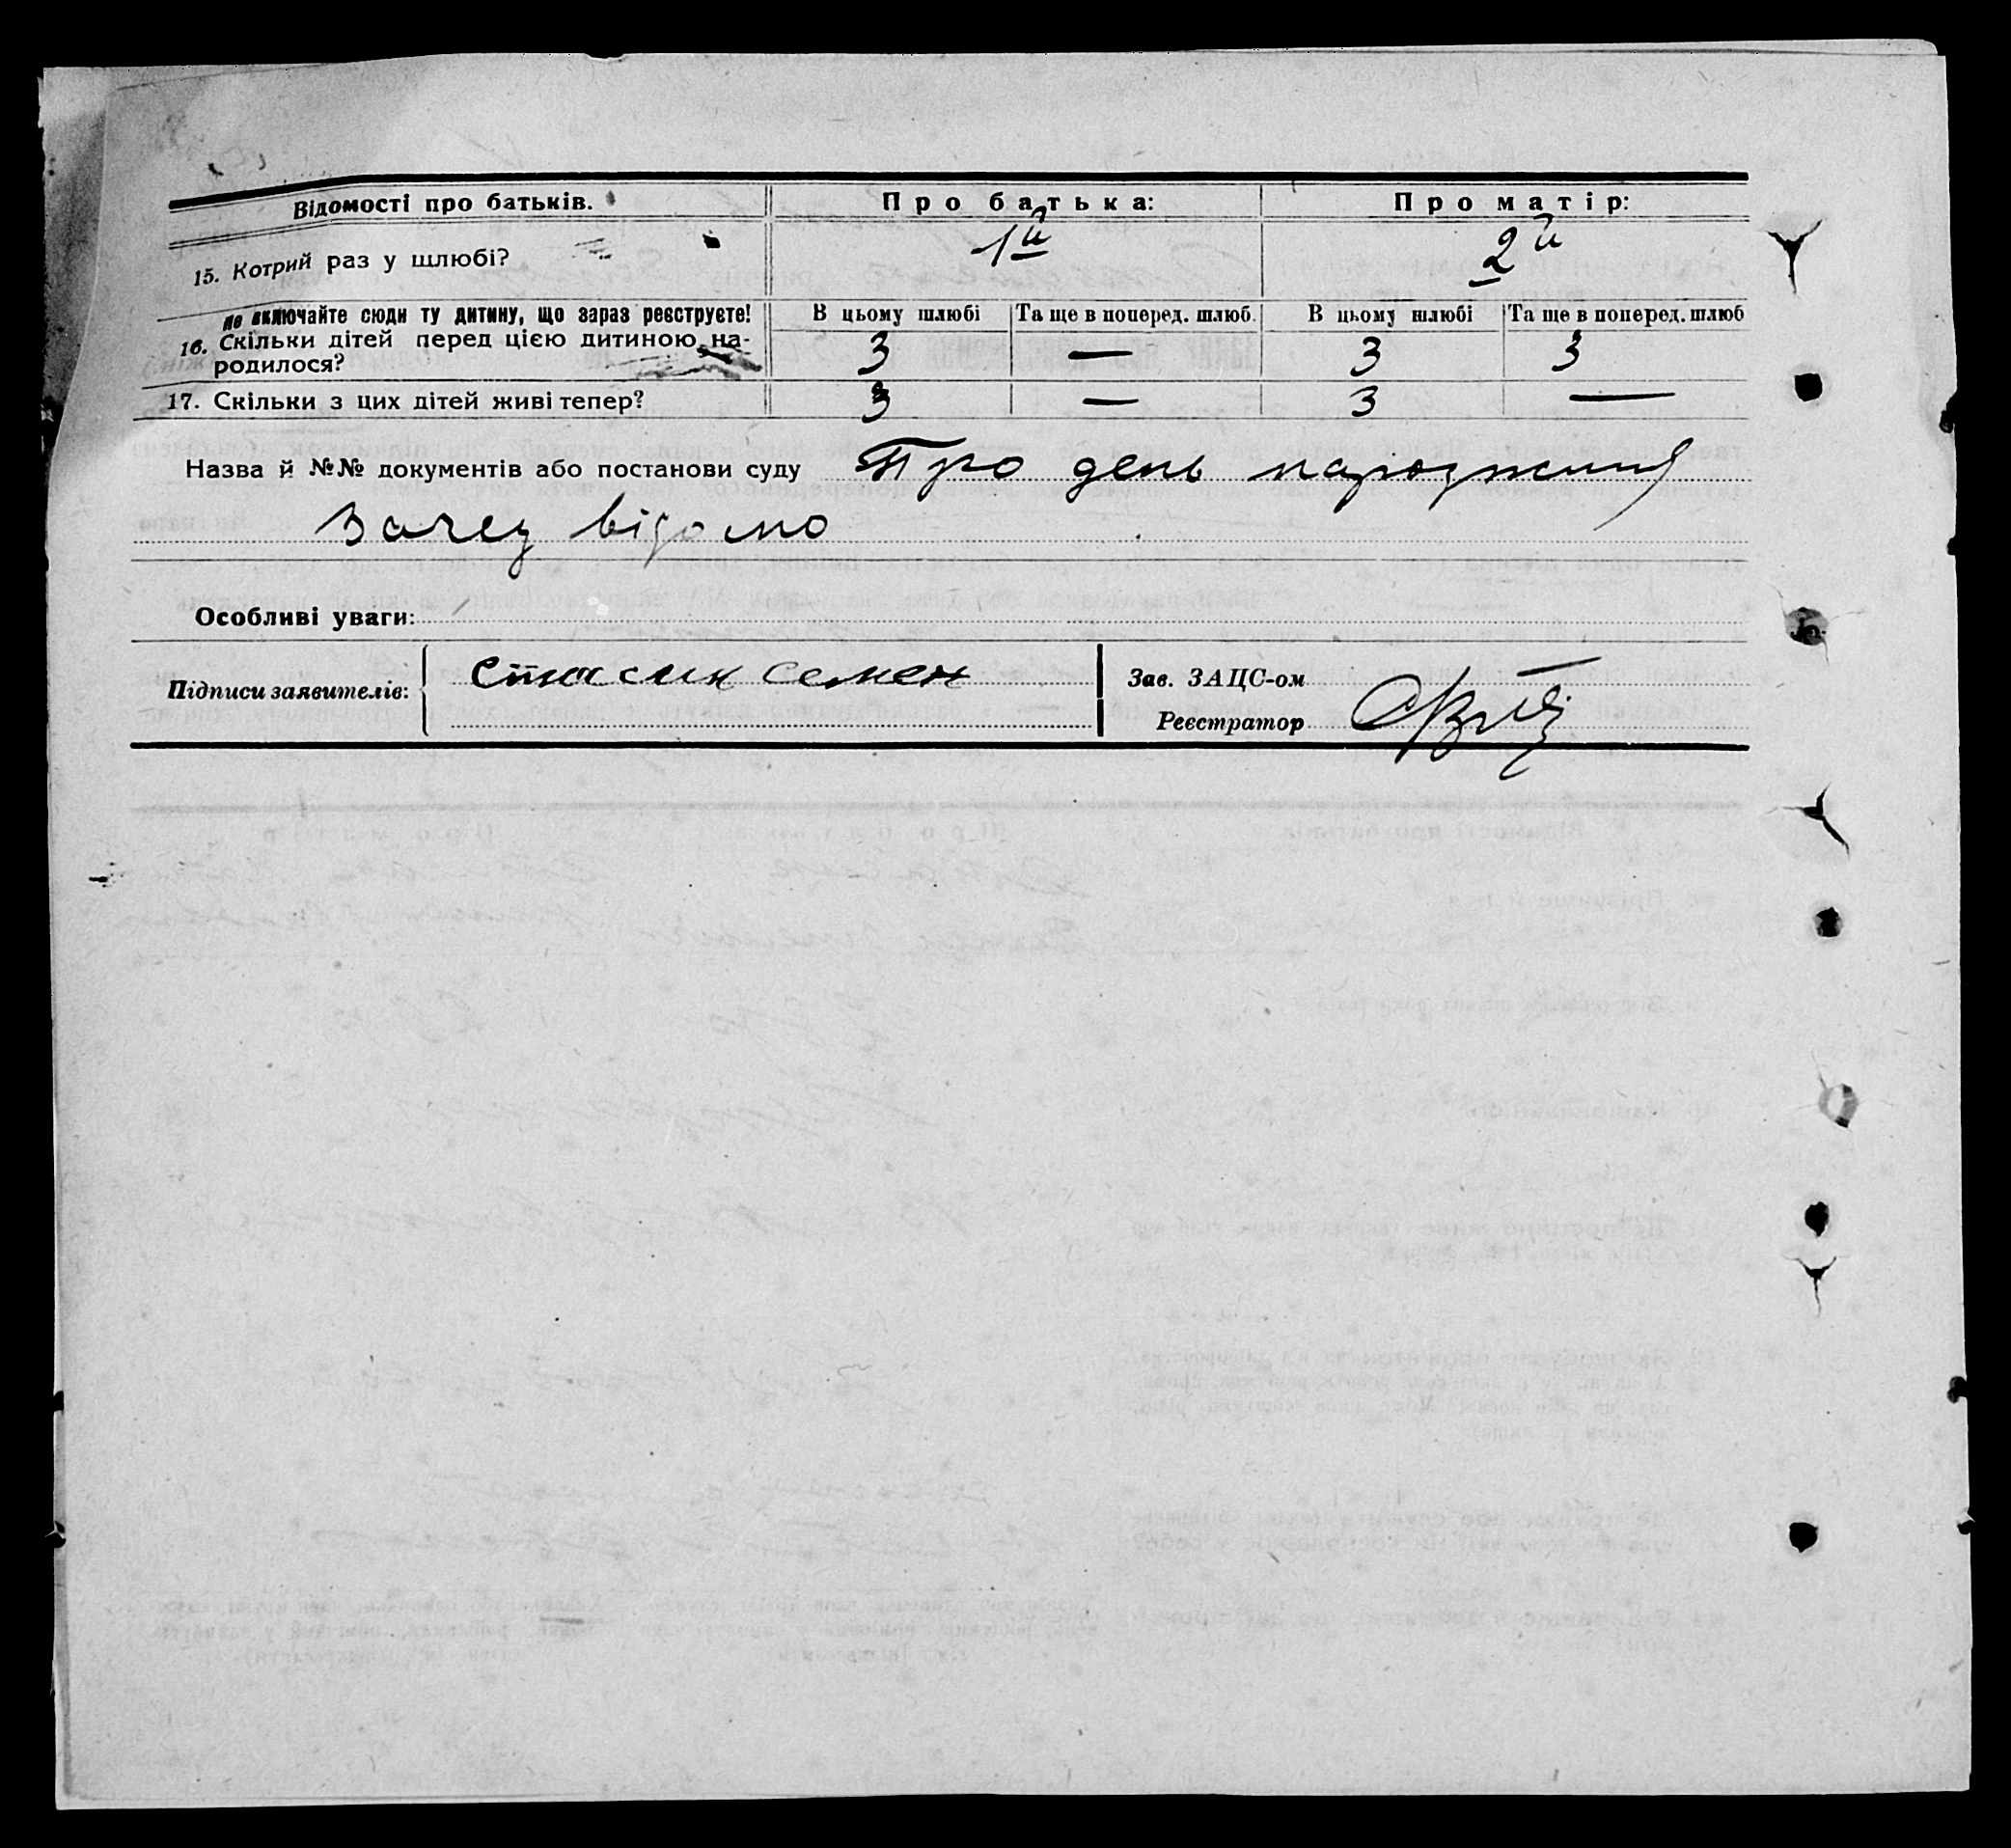 Відомості про батьків. Про батька: Про матір:
15. Котрий раз у шлюбі? 1й 2й
Не включайте сюди ту дитину, що зараз реєструєте! В цьому шлюбі Та ще в поперед. шлюб. В цьому шлюбі Та ще в поперед. шлюб
16. Скільки дітей перед цією дитиною на-
родилося? 3 — 3 3
17. Скільки з цих дітей живі тепер? 3 — 3 —
Назва й №№ документів або постанови суду Про день народження
Загсу відомо
Особливі уваги:
Підписи заявителів: Семен Зав. ЗАЦС-ом
Реєстратор